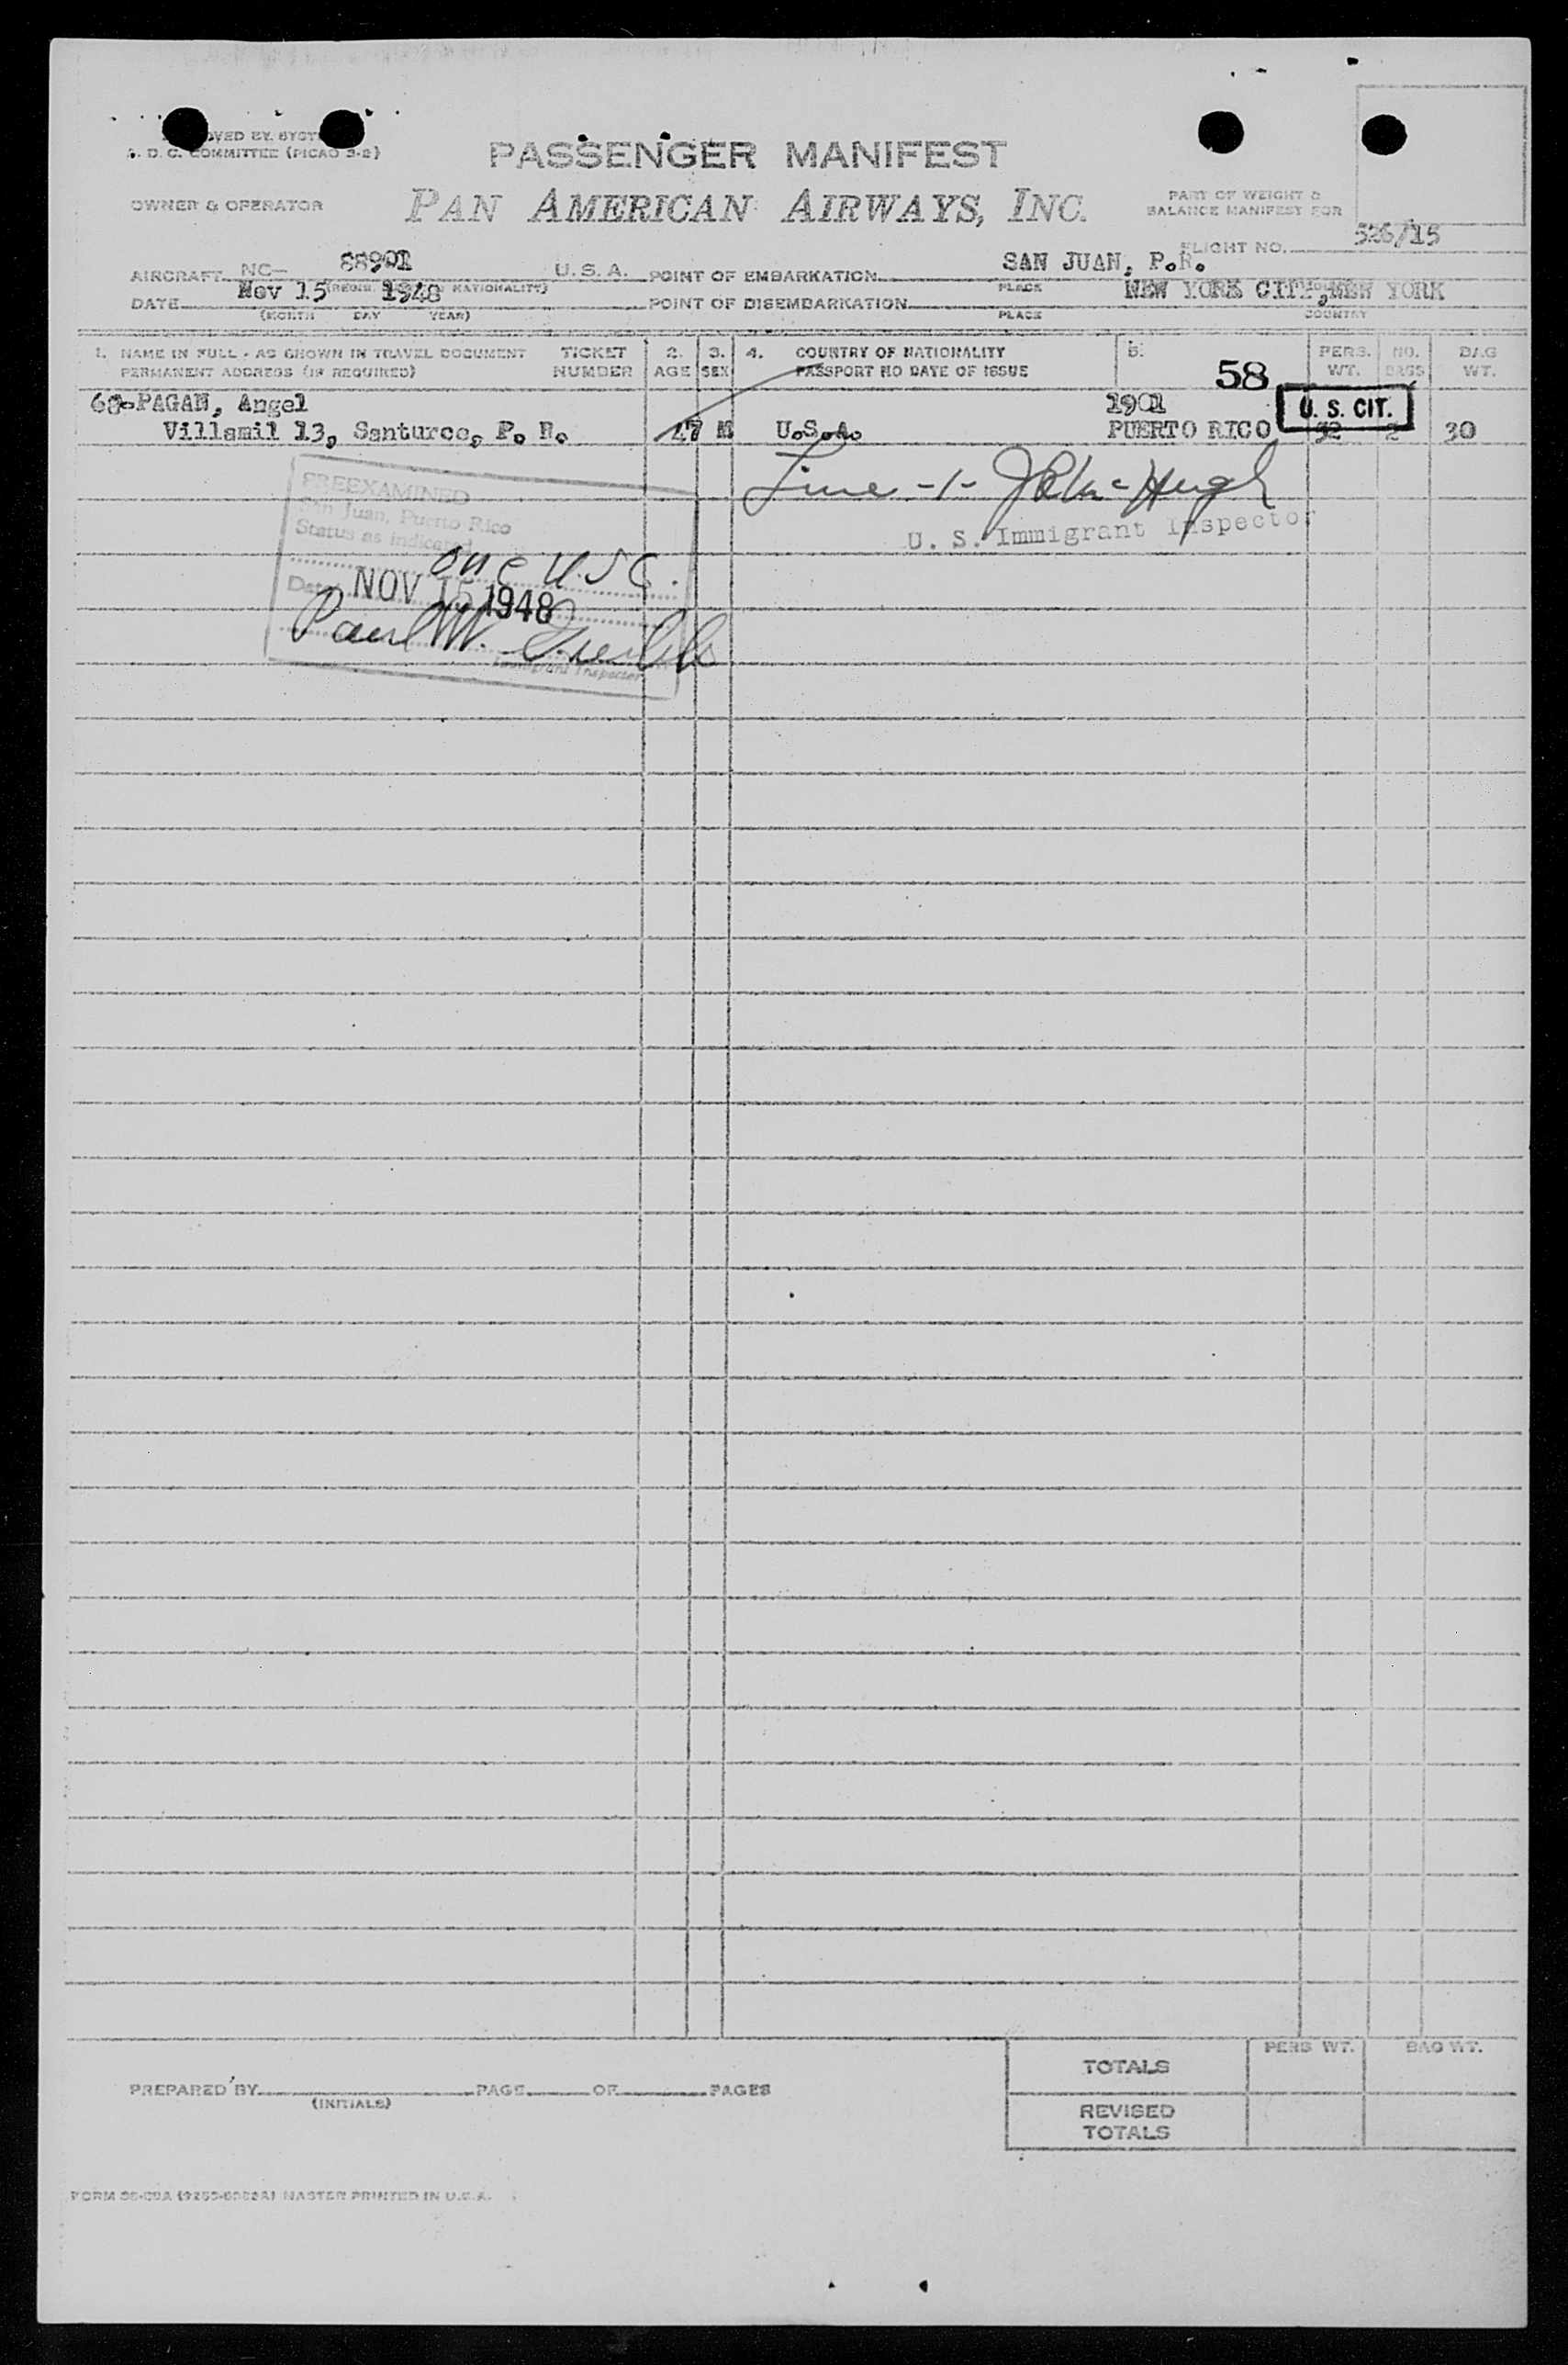 OVED BY. SYST
D. C. COMMITTEE (PICAO S-2)
PASSENGER MANIFEST
OWNER & OPERATOR
PAN AMERICAN AIRWAYS, INC.
PART OF WEIGHT &
BALANCE MANIFEST FOR
FLIGHT NO. 526/15
AIRCRAFT NC- 88901 U.S.A. POINT OF EMBARKATION SAN JUAN, P.R.
(REGIS. NATIONALITY) PLACE
DATE Nov 15 1948 POINT OF DISEMBARKATION NEW YORK CITY, NEW YORK
(MONTH DAY YEAR) PLACE COUNTRY
1. NAME IN FULL - AS SHOWN IN TRAVEL DOCUMENT TICKET 2. 3. 4. COUNTRY OF NATIONALITY 5. PERS. NO. BAG
PERMANENT ADDRESS (IF REQUIRED) NUMBER AGE SEX PASSPORT NO DATE OF ISSUE 58 WT. BAGS WT.
PAGAN, Angel 1901 U. S. CIT.
Villamil 13, Santurce, P. R. 47 M U.S.A. PUERTO RICO 32 2 30
PREEXAMINED
San Juan, Puerto Rico
Line -1-
Status as indicated
U. S. Immigrant Inspector
one U.S.C.
Date NOV 15 1948
Paul W.
Immigrant Inspector
TOTALS PERS WT. BAG WT.
PREPARED BY PAGE OF PAGES
(INITIALS)
REVISED
TOTALS
MASTER PRINTED IN U.S.A.